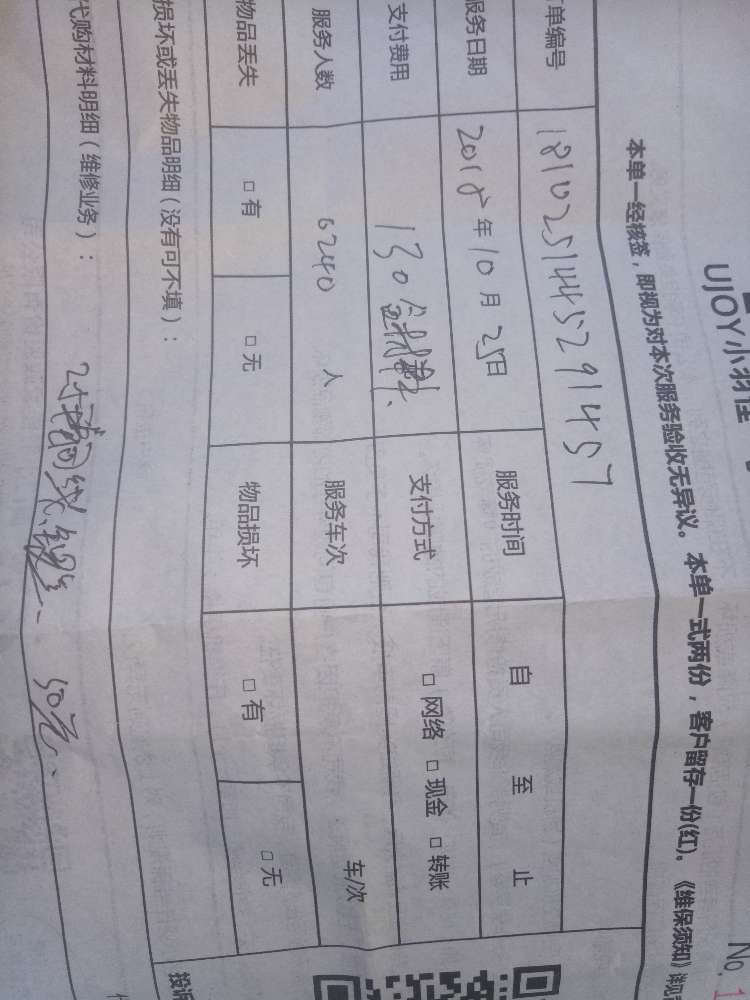 UJOY小羽佳
No. 1
本单一经核签，即视为对本次服务验收无异议。本单一式两份，客户留存一份(红)。《维保须知》详见
单编号 1810251445291457
服务日期 2018年10月25日 服务时间 自 至 止
支付费用 130 支付方式 □ 网络 □ 现金 □ 转账
服务人数 6240 人 服务车次 车/次
物品丢失 □ 有 □ 无 物品损坏 □ 有 □ 无
损坏或丢失物品明细（没有可不填）：
投诉
代购材料明细（维修业务）： 50元.